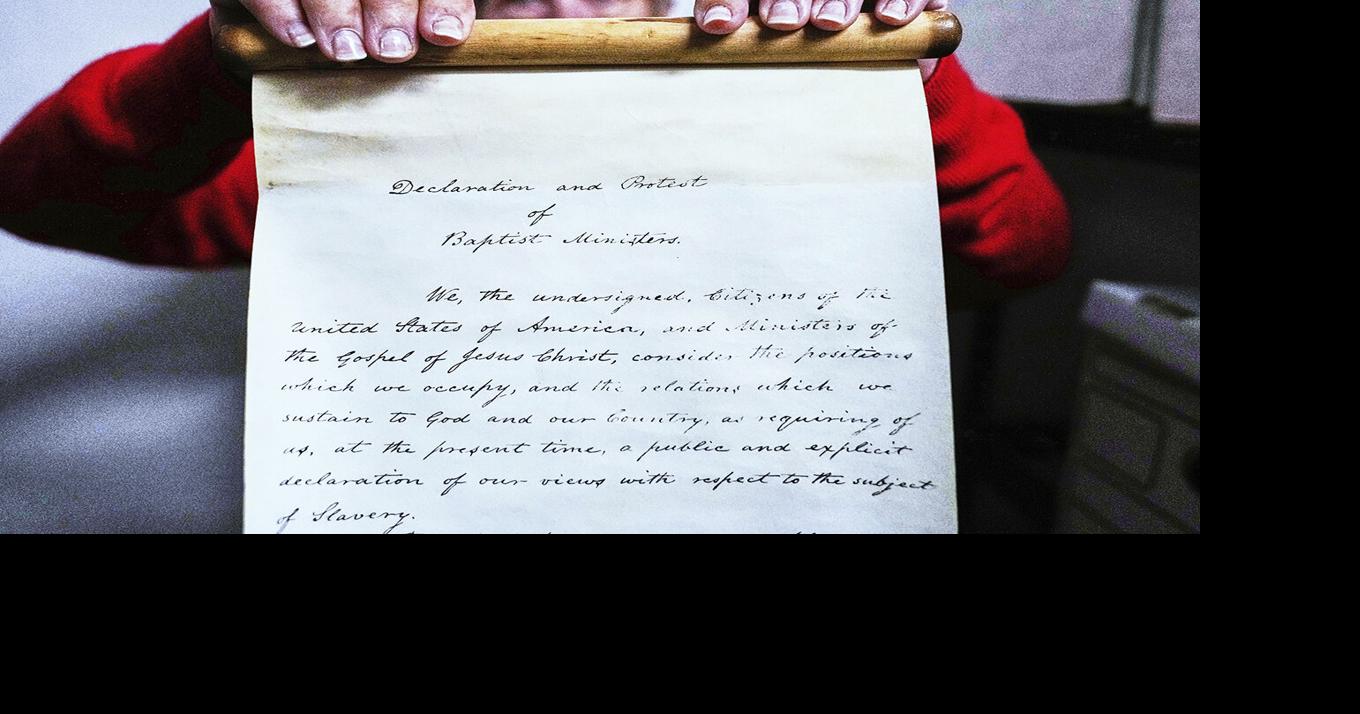 Declaration and Protest
of
Baptist Ministers.
We, the undersigned, Citizens of the
United States of America, and Ministers of
the Gospel of Jesus Christ, consider the positions
which we occupy, and the relations which we
sustain to God and our Country, as requiring of
us, at the present time, a public and explicit
declaration of our views with respect to the subject
of Slavery.